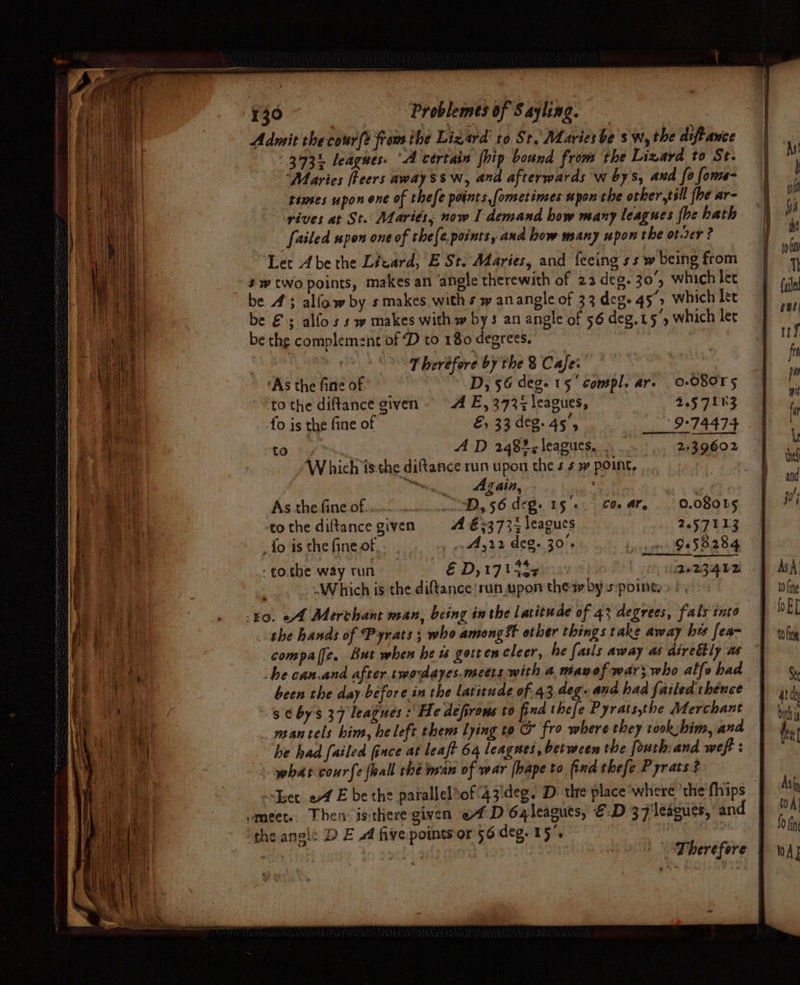 130 Problemes of Sayling.
Admit the courſe from the Lizard to St. Maries be s w, the diſtance
373½ leagues. A certain ſhip bound from the Lizard to St.
Maries ſteers away s s w, and afterwards w by s, and ſo ſome-
times upon one of theſe points, ſometimes upon the other, till ſhe ar-
rives at St. Maries, now I demand how many leagues ſhe hath
ſailed upon one of theſe points, and how many upon the other?
Let A be the Lizard, E St. Maries, and ſeeing s s w being from
s w two points, makes an angle therewith of 22 deg. 30', which let
be A; alſo w by s makes with s w an angle of 33 deg. 45', which let
be E; alſo s s w makes with w by s an angle of 56 deg. 15', which let
be the complement of D to 180 degrees.
Therefore by the 8 Caſe.
As the ſine of D, 56 deg. 15' compl. ar. 0.08015
to the diſtance given A E, 373½ leagues, 2.57113
ſo is the ſine of E, 33 deg. 45', 9.74474
to A D 248 leagues, 2.39602
Which is the diſtance run upon the s s w point.
Again,
As the ſine of D, 56 deg. 15'. co. ar. 0.08015
to the diſtance given A E, 373½ leagues 2.57113
ſo is the ſine of A, 22 deg. 30'. 9.58284
to the way run E D, 171 2.23412
Which is the diſtance run upon the w by s point.
10. A Merchant man, being in the latitude of 43 degrees, fals into
the hands of Pyrats; who amongſt other things take away his ſea-
compaſſe. But when he is gotten cleer, he ſails away as directly as
he can and after two dayes meets with a man of war; who alſo had
been the day before in the latitude of 43 deg. and had ſailed thence
s e by s 37 leagues: He deſirous to find theſe Pyrats, the Merchant
man tels him, he left them lying to & fro where they took him, and
he had ſailed ſince at leaſt 64 leagues, between the ſouth and weſt:
what courſe ſhall the man of war ſhape to find theſe Pyrats?
Let A E be the parallel of 43 deg. D the place where the ſhips
meet. Then is there given A D 64 leagues, E D 37 leagues, and
the angle D E A five points or 56 deg. 15'.
Therefore